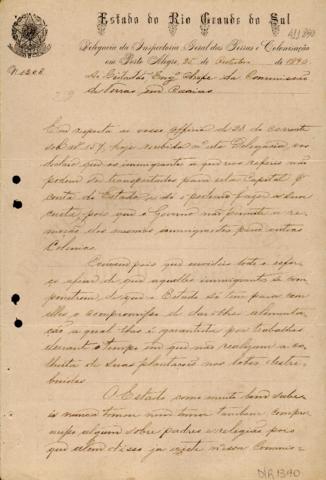 Estado do Rio Grande do Sul
Delegacia da Inspectoria Geral das Terras e Colonisação
em Porto Alegre, 25 de Outubro de 1890
Ao Cidadão Engº Chefe da Commissão
de terras em Caxias
Em resposta a vosso officio de 23 do corrente
sob nº 157, hoje recebido nesta Delegacia, vos
declaro que os immigrantes a que vos referis não
podem ser transportados para esta Capital p
conta do Estado e só o poderão fazer a sua
custa, pois que o Governo não permitte a re-
moção dos mesmos immigrantes para outras
Colonias.
Convem pois que envideis todo o esfor-
ço afim de que aquelles immigrantes se com-
penetrem de que o Estado só tem para com
elles o compromisso de dar-lhes alimenta-
ção a qual lhes é garantida por trabalhos
durante o tempo em que não realizam a co-
lheita de suas plantações nos lotes distri-
buidos.
O Estado como muito bem sabe-
is nunca tomou nem toma tambem compro-
misso algum sobre padres e religião pois
que alem disso ja existe nessa Commis-
DIR 1340